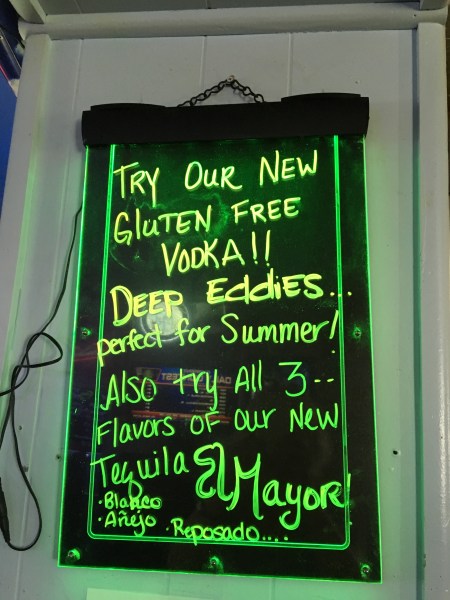 Try Our New
Gluten Free
Vodka!!
Deep Eddies...
perfect for Summer!
Also try All 3--
Flavors of our New
Tequila El Mayor!
·Blanco
·Añejo ·Reposado....